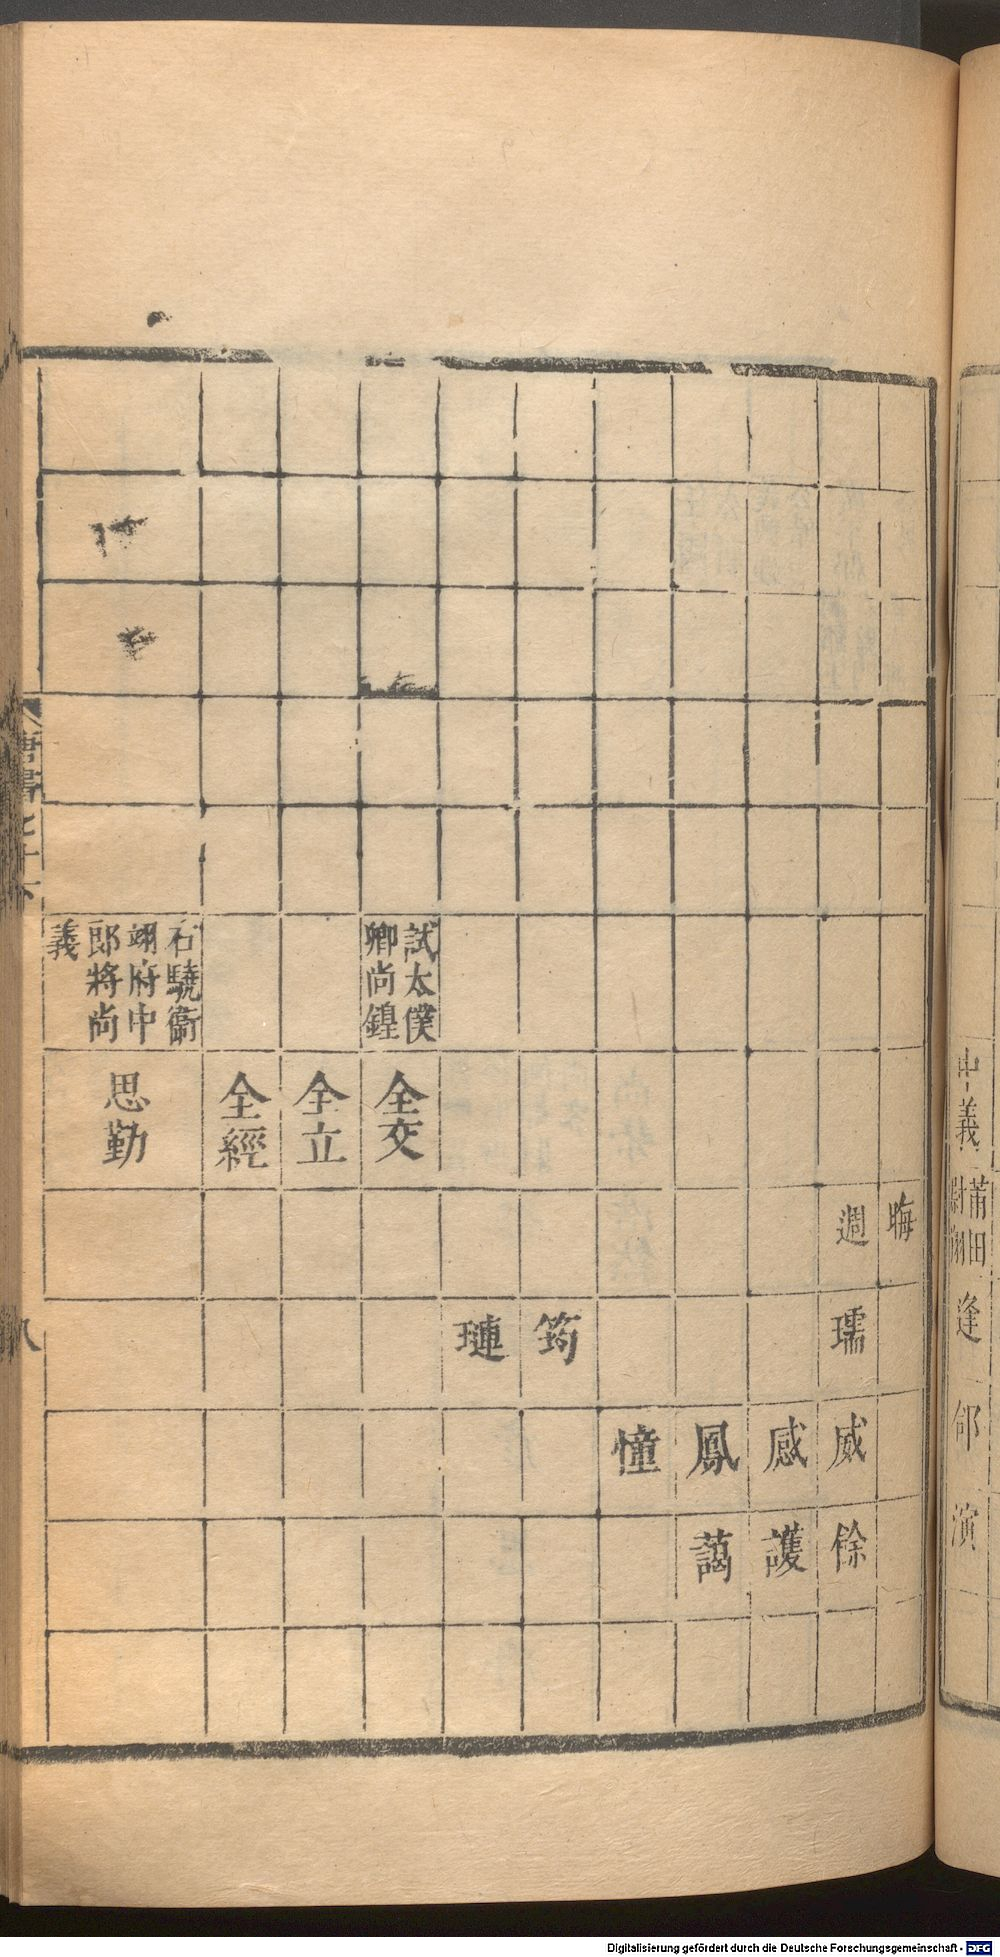 中義
莆田
尉翔
逢
郇
演
晦
週
瓀
威
餘
感
護
鳳
藹
憧
筠
璉
試太僕
卿尚鍠
全交
全立
全經
右驍衛
翊府中
郎將尚
義
思勤
唐書七十下
八
Digitalisierung gefördert durch die Deutsche Forschungsgemeinschaft - DFG